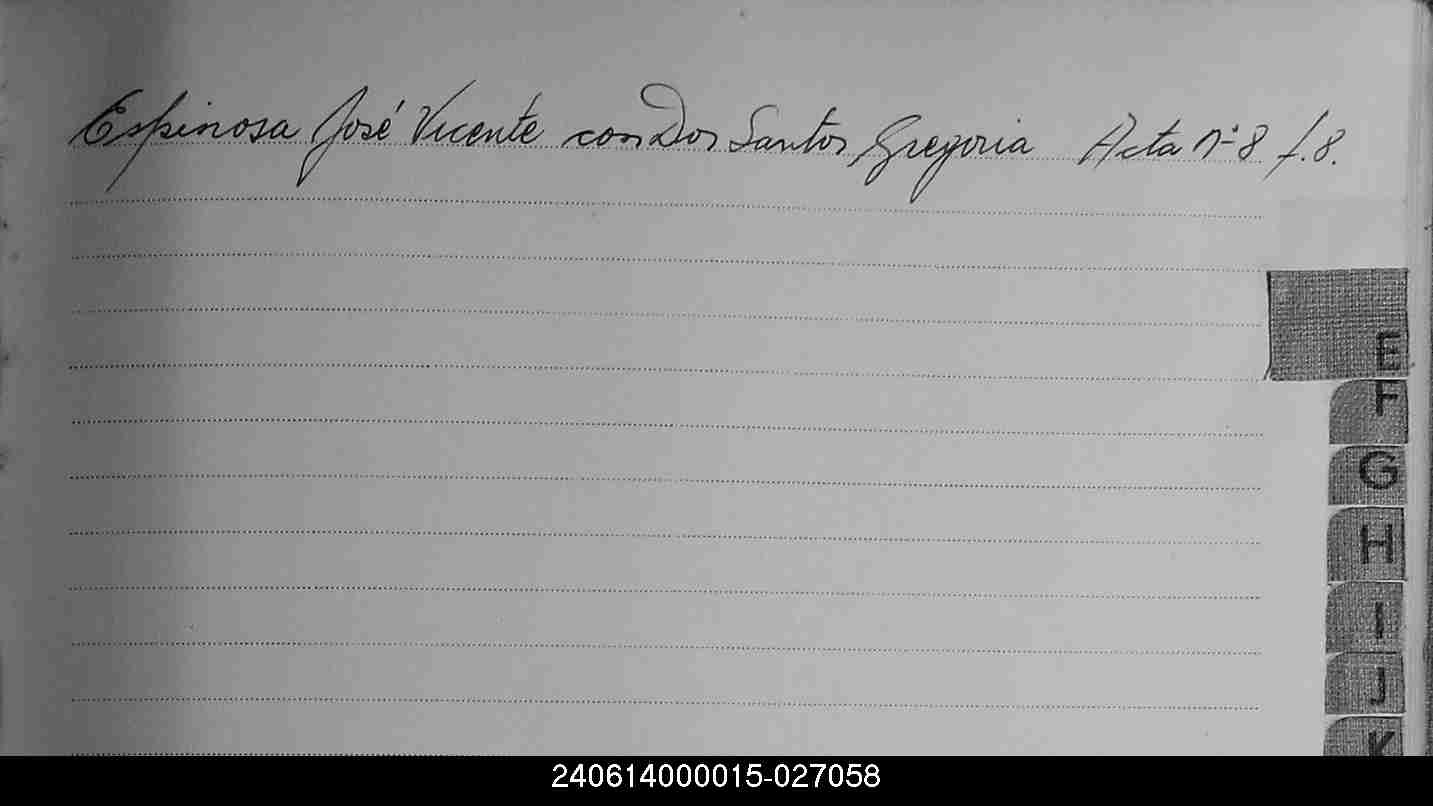 Espinosa José Vicente con Dos Santos Gregoria Acta nº 8 f. 8.
E
F
G
H
I
J
K
240614000015-027058